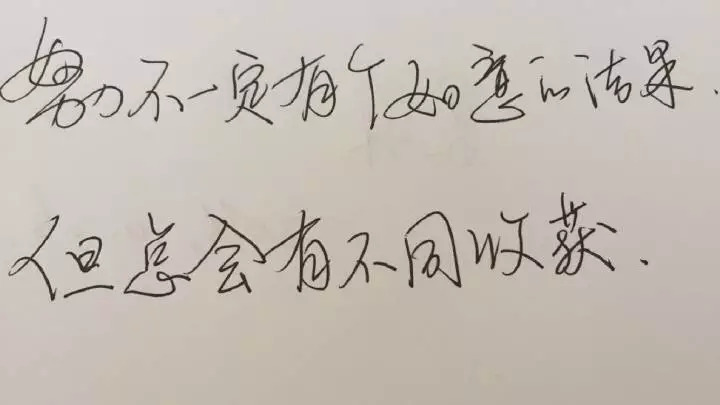 努力不一定有个如意的结果.
但总会有不同收获.